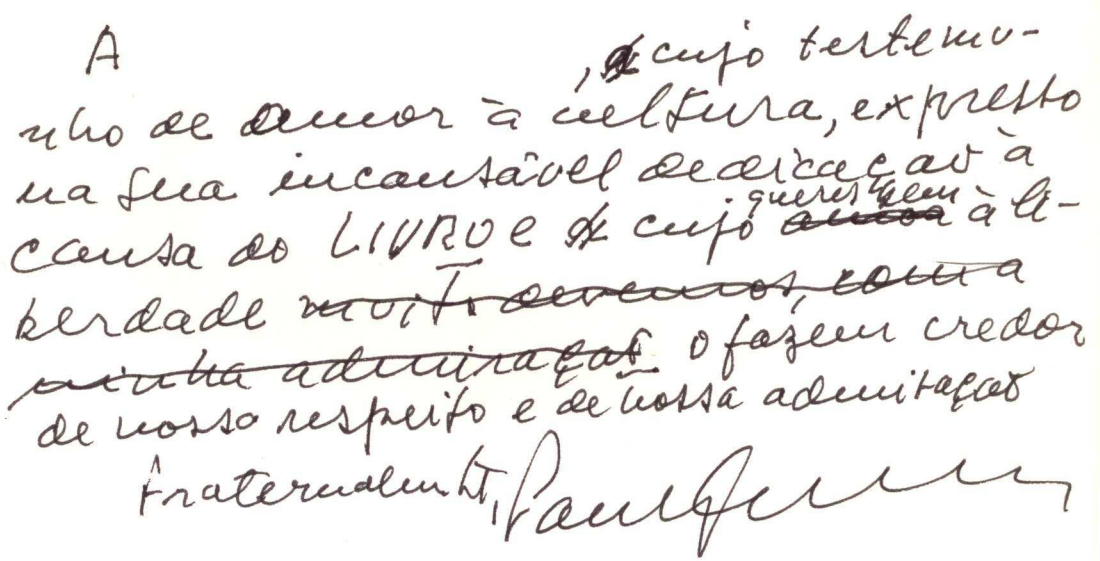 A , cujo testemu-
nho de amor à cultura, expresso
na sua incansável dedicação à
causa do LIVRO e cujo ~~amor~~ querer bem à li-
berdade ~~muito devemos, com a~~
~~minha admiração~~ o fazem credor
de nosso respeito e de nossa admiração
Fraternalmente, Paulo Freire